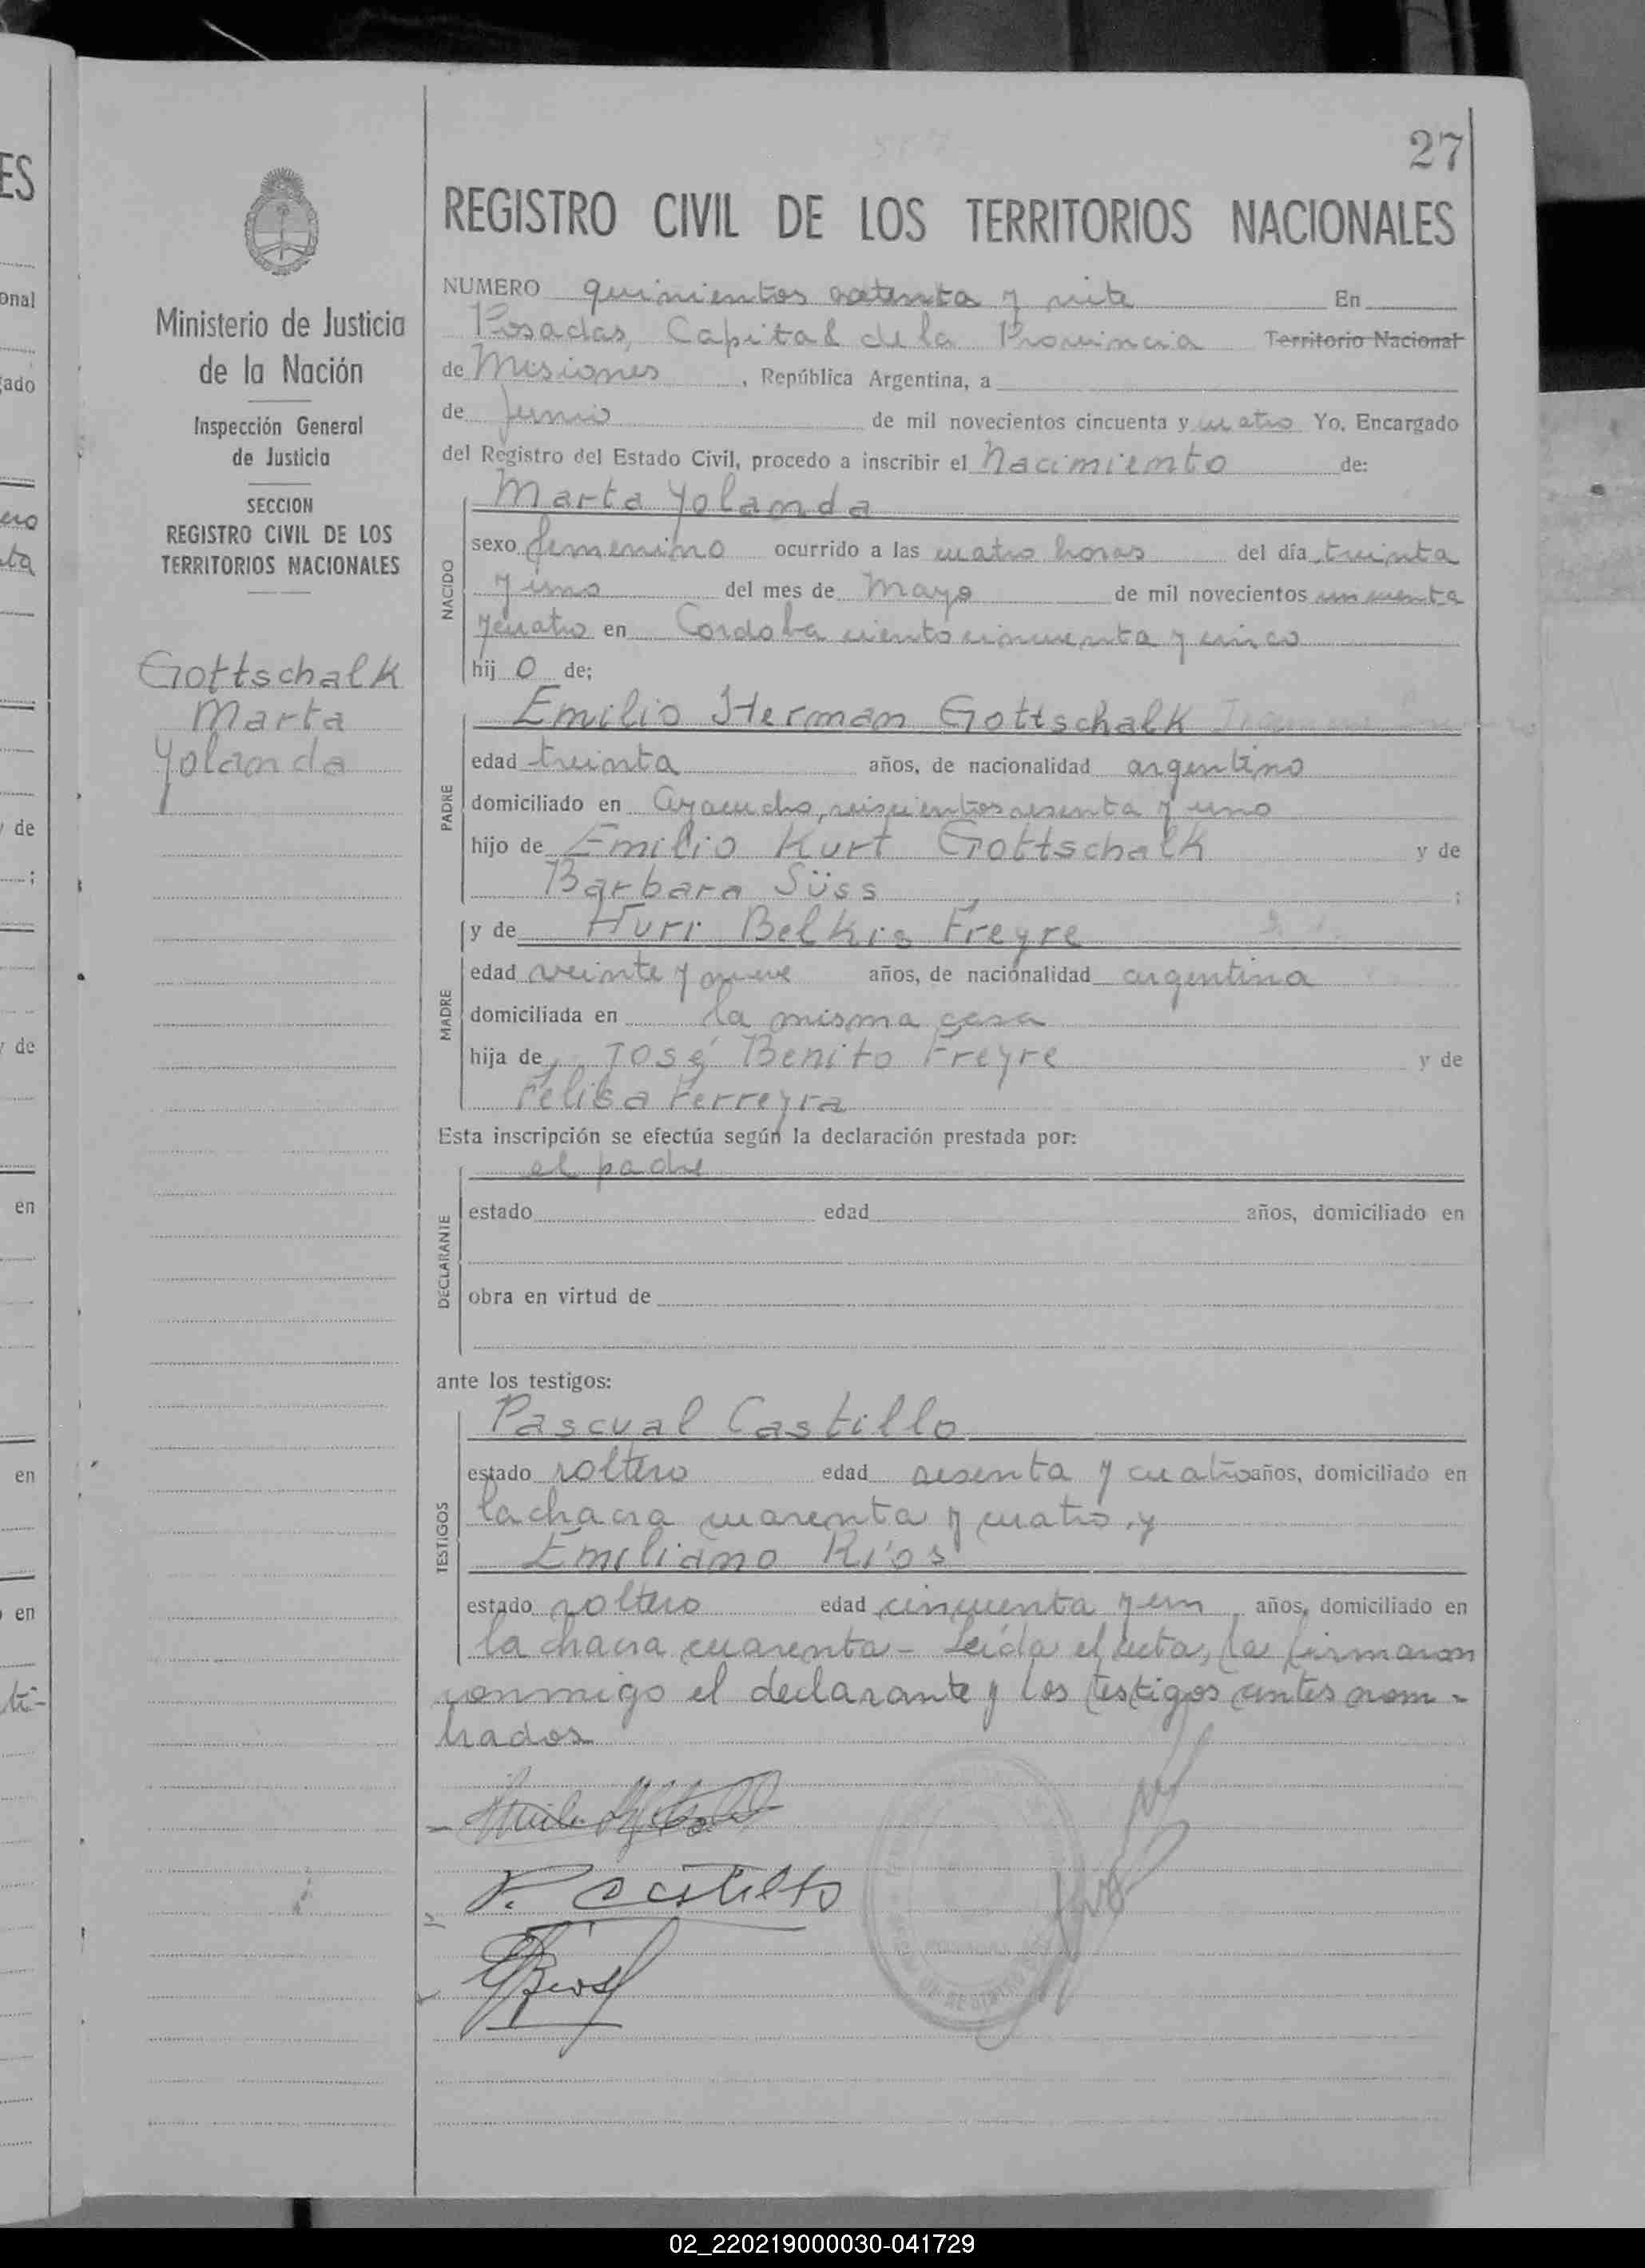 27
REGISTRO CIVIL DE LOS TERRITORIOS NACIONALES
Ministerio de Justicia
de la Nación
Inspección General
de Justicia
SECCION
REGISTRO CIVIL DE LOS
TERRITORIOS NACIONALES
Gottschalk
Marta
Yolanda
NUMERO quinientos setenta y siete En
Posadas, Capital de la Provincia Territorio Nacional
de Misiones, República Argentina, a
de Junio de mil novecientos cincuenta y cuatro Yo, Encargado
del Registro del Estado Civil, procedo a inscribir el Nacimiento de:
Marta Yolanda
NACIDO
sexo femenino ocurrido a las cuatro horas del día treinta
y uno del mes de Mayo de mil novecientos cincuenta
y cuatro en Cordoba ciento cincuenta y cinco
hij o de;
Emilio Herman Gottschalk
PADRE
edad treinta años, de nacionalidad argentino
domiciliado en Ayacucho, seiscientos sesenta y uno
hijo de Emilio Kurt Gottschalk y de
Barbara Süss ;
y de Huri Belkis Freyre
MADRE
edad veinte y nueve años, de nacionalidad argentina
domiciliada en la misma casa
hija de José Benito Freyre y de
Felisa Ferreyra
Esta inscripción se efectúa según la declaración prestada por:
el padre
DECLARANTE
estado edad años, domiciliado en
obra en virtud de
ante los testigos:
Pascual Castillo
TESTIGOS
estado soltero edad sesenta y cuatro años, domiciliado en
la chacra cuarenta y cuatro, y
Emiliano Ríos
estado soltero edad cincuenta y un años, domiciliado en
la chacra cuarenta - Leída el acta, la firmaron
conmigo el declarante y los testigos antes nom-
brados
P. Castillo
ERios
ES
onal
ado
de
de
en
en
en
02_220219000030-041729